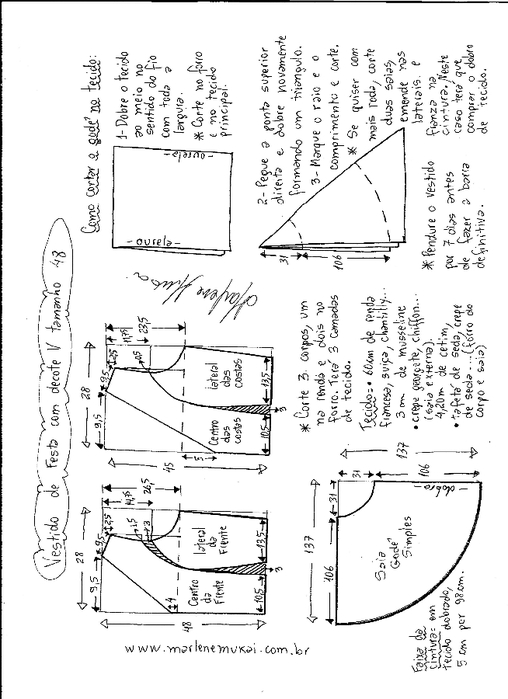 Vestido de Festa com decote V tamanho 48
28
9,5
9,5
2,5
14,75
26,5
1,5
3
lateral
da
Frente
Centro
da
Frente
4
10,5
13,5
3
48
28
9,5
9,5
2,5
11,75
23,5
0,5
lateral
das
costas
Centro
das
costas
5
10,5
13,5
3
45
Marlene Mukai
Como cortar o godê no tecido:
1- Dobre o tecido
ao meio no
sentido do fio
com toda a
largura.
* Corte no forro
e no tecido
principal.
- ourela -
- ourela -
2- Pegue a ponta superior
direita e dobre novamente
formando um triangulo.
3- Marque o raio e o
comprimento e corte.
* Se quiser com
mais roda, corte
duas saias,
emende nas
laterais. e
franza na
cintura, neste
caso terá que
comprar o dobro
de tecido.
31
106
* Pendure o vestido
por 7 dias antes
de fazer a barra
definitiva.
* Corte 3 corpos, um
na renda e dois no
forro. Terá 3 camadas
de tecido.
Tecido:• 60cm de renda
francesa, suiça, chantilly...
3 m de musseline
• crepe georgete, chiffon...
(saia externa).
4,20m de cetim,
• tafetá de seda, crepe
de seda...(forro do
corpo e saia)
137
31
106
137
106
31
Saia
Godê
Simples
- dobra -
Faixa da
cintura: em
tecido dobrado,
5 cm por 98cm.
www.marlenemukai.com.br